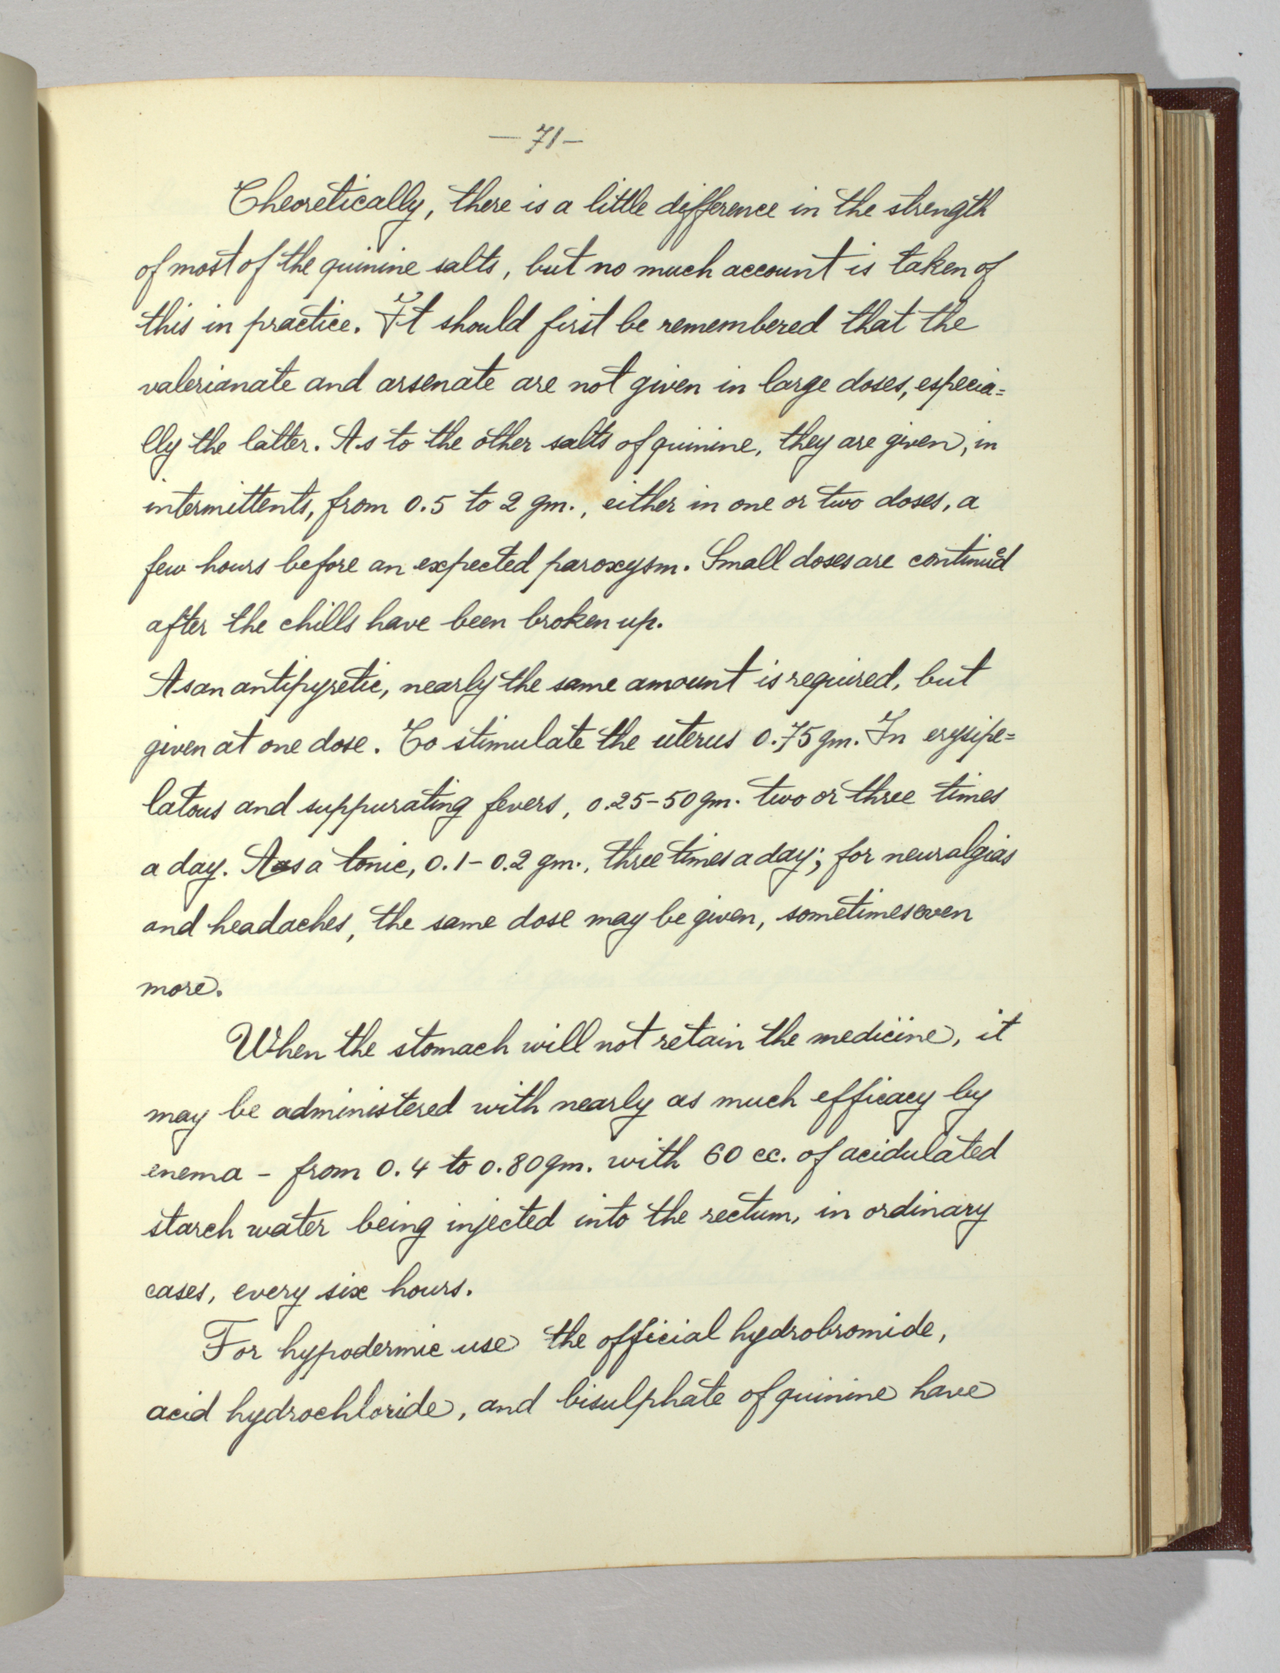 — 71 —
Theoretically, there is a little difference in the strength
of most of the quinine salts, but no much account is taken of
this in practice. It should first be remembered that the
valerianate and arsenate are not given in large doses, especia=
lly the latter. As to the other salts of quinine, they are given, in
intermittents, from 0.5 to 2 gm., either in one or two doses, a
few hours before an expected paroxysm. Small doses are continued
after the chills have been broken up.
As an antipyretic, nearly the same amount is required, but
given at one dose. To stimulate the uterus 0.75 gm. In erysipe=
latous and suppurating fevers, 0.25-50 gm. two or three times
a day. As a tonic, 0.1 - 0.2 gm., three times a day; for neuralgias
and headaches, the same dose may be given, sometimes even
more.
When the stomach will not retain the medicine, it
may be administered with nearly as much efficacy by
enema - from 0.4 to 0.80 gm. with 60 cc. of acidulated
starch water being injected into the rectum, in ordinary
cases, every six hours.
For hypodermic use the official hydrobromide,
acid hydrochloride, and bisulphate of quinine have